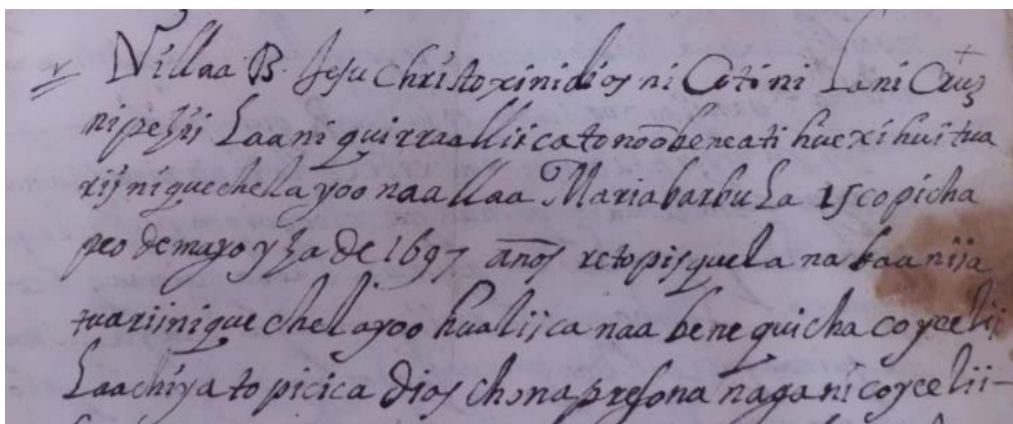 Villaa B. Jesu Christo xinidios ni Coti ni Lani Cruz
ni pezij Laa ni quirraalliicatonoo beneati huexihuitua
rijni quechelayoo naallaa Maria barbula 15 copicha
peo de mayo yza de 1697 años retopisquela na baa nija
tuarijni quechelayoo hualiica naa bene quicha coycelij
Laachiya topicica Dios chona presona naga ni coycelii-